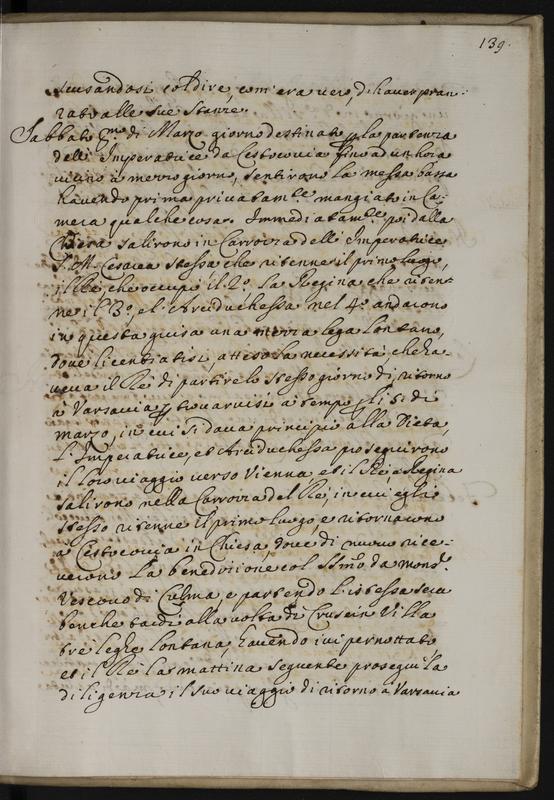 139.
scusandosi col dire, com'era vero, d'haver pran-
zato alle sue stanze.
Sabbato p.mo di Marzo giorno destinato p la partenza
dell'Imperatrice da Cestocovia fino ad un hora
vicino a mezzo giorno, sentirono la messa bassa
havendo prima privatam.te mangiato in Ca-
mera qualche cosa. Immediatam.te poi dalla
Chiesa salirono in Carrozza dell'Imperatrice
S. M. Cesarea stessa che ritenne il primo luogo,
il Rè che occupò il 2.o la Regina che riten-
ne il 3.o, e l'Arciduchessa nel 4.o andarono
in questa guisa una mezza lega lontano,
dove licentiatisi, atteso la necessità, che ha-
veva il Rè di partire lo stesso giorno di ritorno
à Varsavia p trovarvisi à tempo p li 5 di
marzo, in cui si dava principio alla Dieta,
L'Imperatrice, et Arciduchessa proseguirono
il loro viaggio verso Vienna et il Rè, e Regina
salirono nella Carrozza del Rè, in cui egli
stesso ritenne il primo luogo e ritornarono
à Cestocovia in Chiesa, dove di nuovo rice-
verono la benedizione col SS.mo da mons.r
Vescovo di Culma, e partendo l'istessa sera
benche tardi alla volta di Crusein Villa
tre leghe lontana, havendo ivi pernottato
et il Rè la mattina seguente proseguì la
diligenza il suo viaggio di ritorno à Varsavia